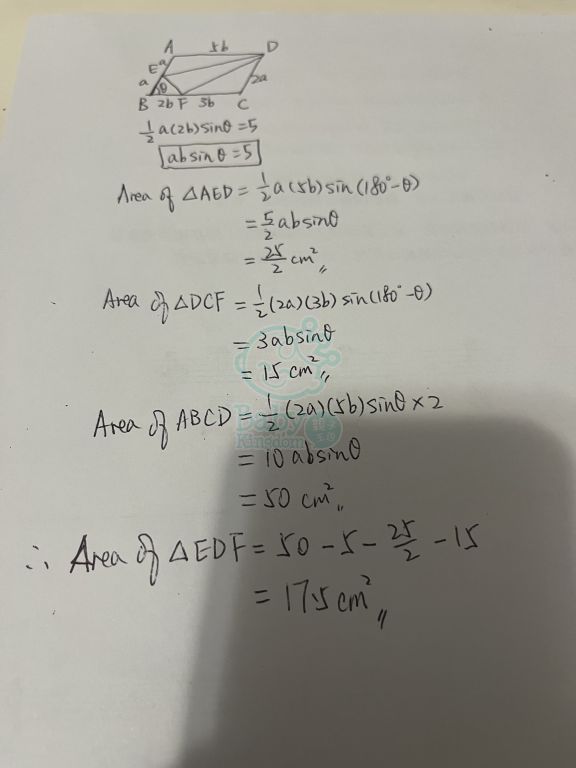 A 5b D
E a
a θ 2a
B 2b F 3b C
½ a(2b) sinθ = 5
ab sinθ = 5
Area of △AED = ½ a(5b) sin(180°-θ)
= 5/2 ab sinθ
= 25/2 cm²〃
Area of △DCF = ½ (2a)(3b) sin(180°-θ)
= 3ab sinθ
= 15 cm²〃
Area of ABCD = ½ (2a)(5b) sinθ × 2
= 10 ab sinθ
= 50 cm²〃
∴ Area of △EDF = 50 - 5 - 25/2 - 15
= 17.5 cm²〃
Baby Kingdom
親子王國